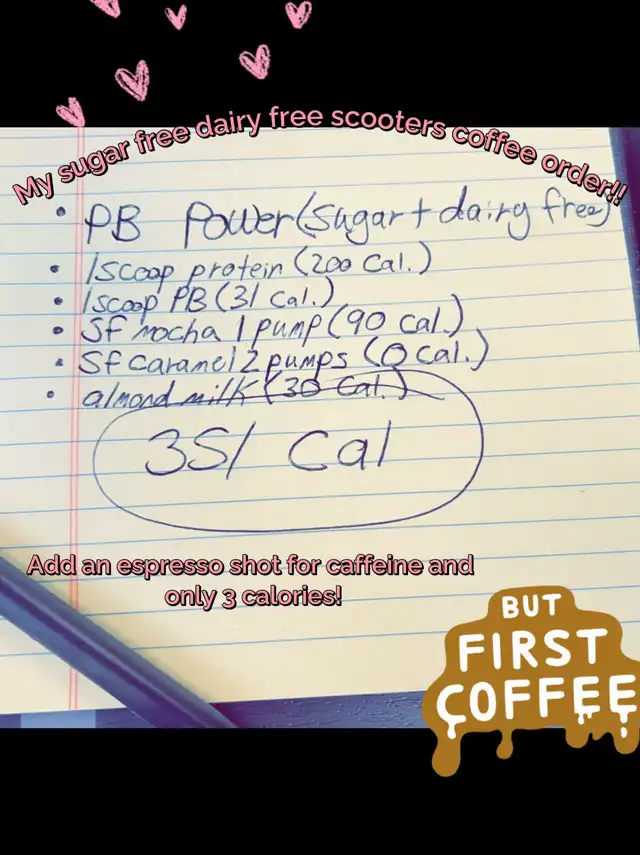 My sugar free dairy free scooters coffee order!!
• PB Power (sugar + dairy free)
• 1 scoop protein (200 Cal.)
• 1 scoop PB (31 Cal.)
• Sf mocha 1 pump (90 Cal.)
• Sf caramel 2 pumps (0 Cal.)
• almond milk (30 Cal.)
351 Cal
Add an espresso shot for caffeine and
only 3 calories!
BUT
FIRST
COFFEE